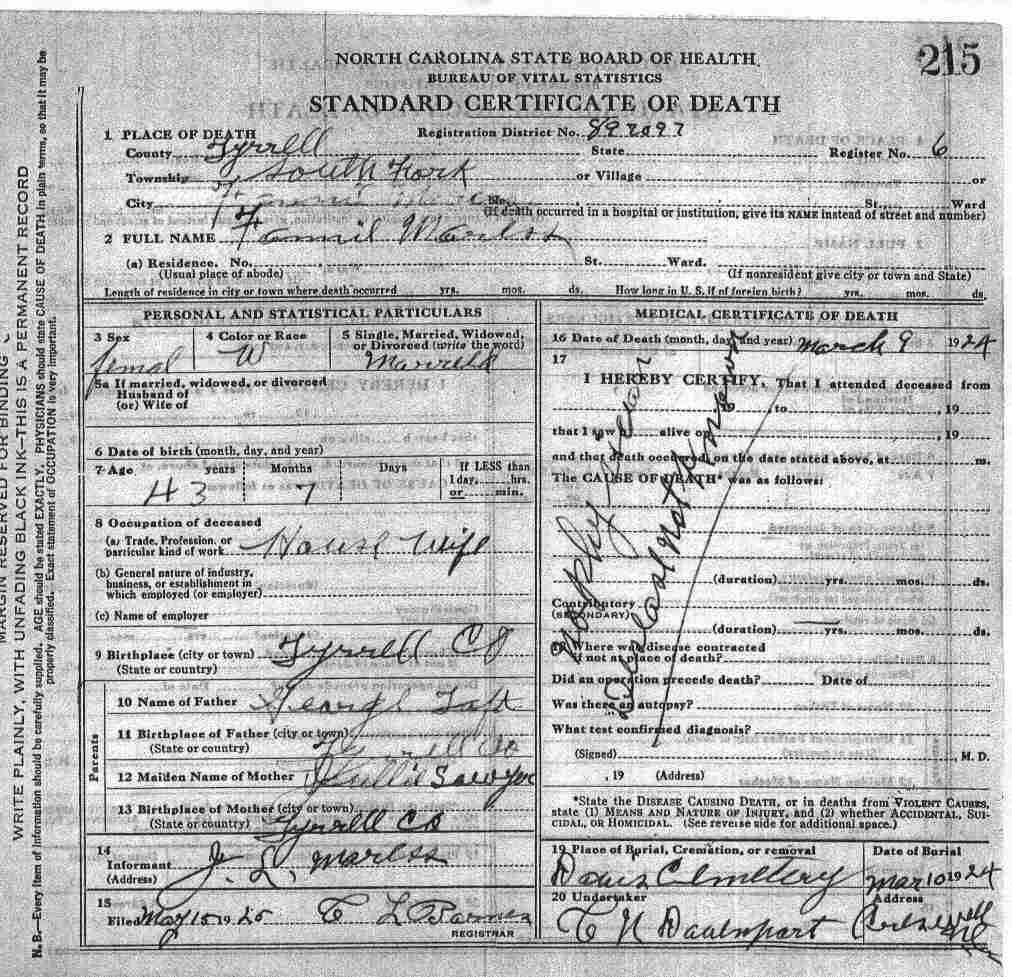 215
NORTH CAROLINA STATE BOARD OF HEALTH
BUREAU OF VITAL STATISTICS
STANDARD CERTIFICATE OF DEATH
1 PLACE OF DEATH Registration District No. 8927097
County Tyrrell State Register No. 6
Township South Fork or Village or
City No. , St. Ward
(If death occurred in a hospital or institution, give its NAME instead of street and number)
2 FULL NAME Fannie
(a) Residence. No. , St. Ward.
(Usual place of abode) (If nonresident give city or town and State)
Length of residence in city or town where death occurred yrs. mos. ds. How long in U. S. if of foreign birth? yrs. mos. ds.
PERSONAL AND STATISTICAL PARTICULARS
3 Sex 4 Color or Race 5 Single, Married, Widowed,
or Divorced (write the word)
femal W Married
5a If married, widowed, or divorced
Husband of
(or) Wife of
6 Date of birth (month, day, and year)
7 Age years Months Days If LESS than
1 day, hrs.
or min.
43 7
8 Occupation of deceased
(a) Trade, Profession, or
particular kind of work House Wife
(b) General nature of industry,
business, or establishment in
which employed (or employer)
(c) Name of employer
9 Birthplace (city or town) Tyrrell CO
(State or country)
Parents
10 Name of Father George Taft
11 Birthplace of Father (city or town)
(State or country) Tyrrell Co
12 Maiden Name of Mother Sawyer
13 Birthplace of Mother (city or town)
(State or country) Tyrrell CO
14
Informant J. L. Marlss
(Address)
15
Filed May 15 1925 C L Barnes
REGISTRAR
MEDICAL CERTIFICATE OF DEATH
16 Date of Death (month, day, and year) March 9 1924
17
I HEREBY CERTIFY, That I attended deceased from
, 19 , to , 19
that I saw h alive on , 19
and that death occurred, on the date stated above, at m.
The CAUSE OF DEATH* was as follows:
No Phy
not known
(duration) yrs. mos. ds.
Contributory
(SECONDARY)
(duration) yrs. mos. ds.
18 Where was disease contracted
if not at place of death?
Did an operation precede death? Date of
Was there an autopsy?
What test confirmed diagnosis?
(Signed) , M. D.
, 19 (Address)
*State the DISEASE CAUSING DEATH, or in deaths from VIOLENT CAUSES,
state (1) MEANS AND NATURE OF INJURY, and (2) whether ACCIDENTAL, SUI-
CIDAL, OR HOMICIDAL. (See reverse side for additional space.)
19 Place of Burial, Cremation, or removal Date of Burial
Davis Cemetery Mar 10 1924
20 Undertaker Address
C N Davenport
MARGIN RESERVED FOR BINDING
WRITE PLAINLY, WITH UNFADING BLACK INK—THIS IS A PERMANENT RECORD
N. B.—Every item of information should be carefully supplied. AGE should be stated EXACTLY. PHYSICIANS should state CAUSE OF DEATH in plain terms, so that it may be
properly classified. Exact statement of OCCUPATION is very important.